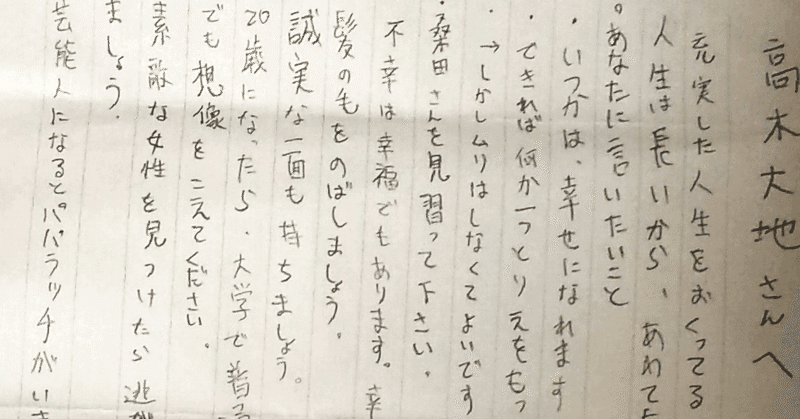 高木大地さんへ
充実した人生をおくってる
人生は長いから、あわてな
。あなたに言いたいこと
・いつかは、幸せになれます
・できれば何か一つとりえをもっ
・→しかしムリはしなくてよいです
・桑田さんを見習って下さい。
不幸は幸福でもあります。幸
髪の毛をのばしましょう。
誠実な一面も持ちましょう。
20歳になったら、大学で着
でも想像をこえてください。
素敵な女性を見つけたら逃
ましょう。
芸能人になるとパパラッチがい